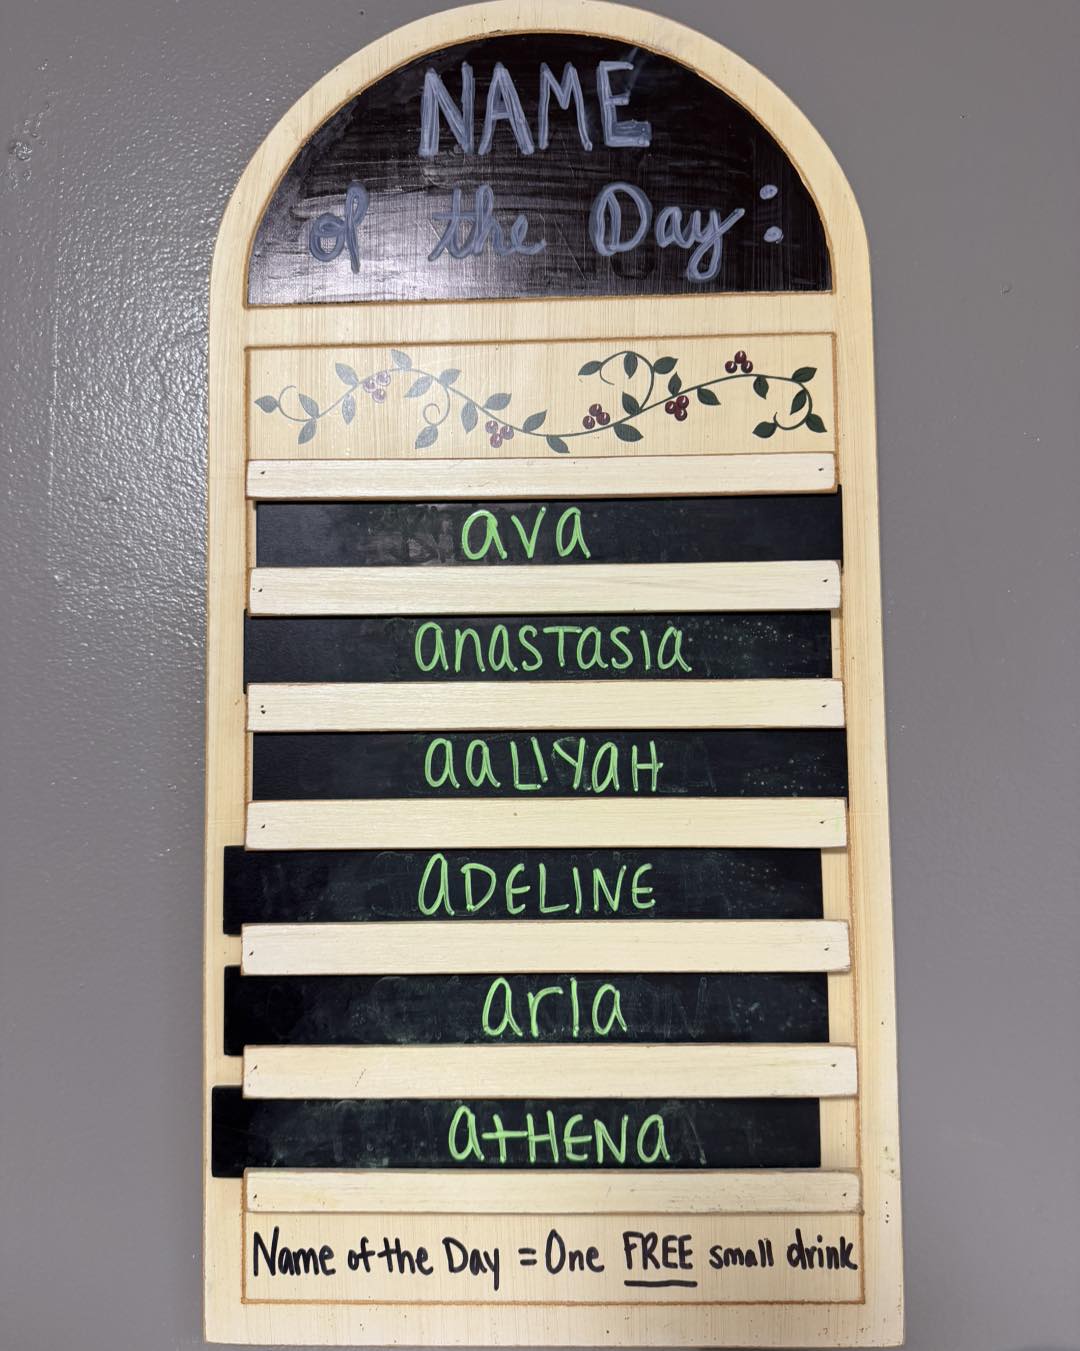 NAME
of the Day:
ava
anastasia
aaliyah
ADELINE
arla
aTHENa
Name of the Day = One FREE small drink